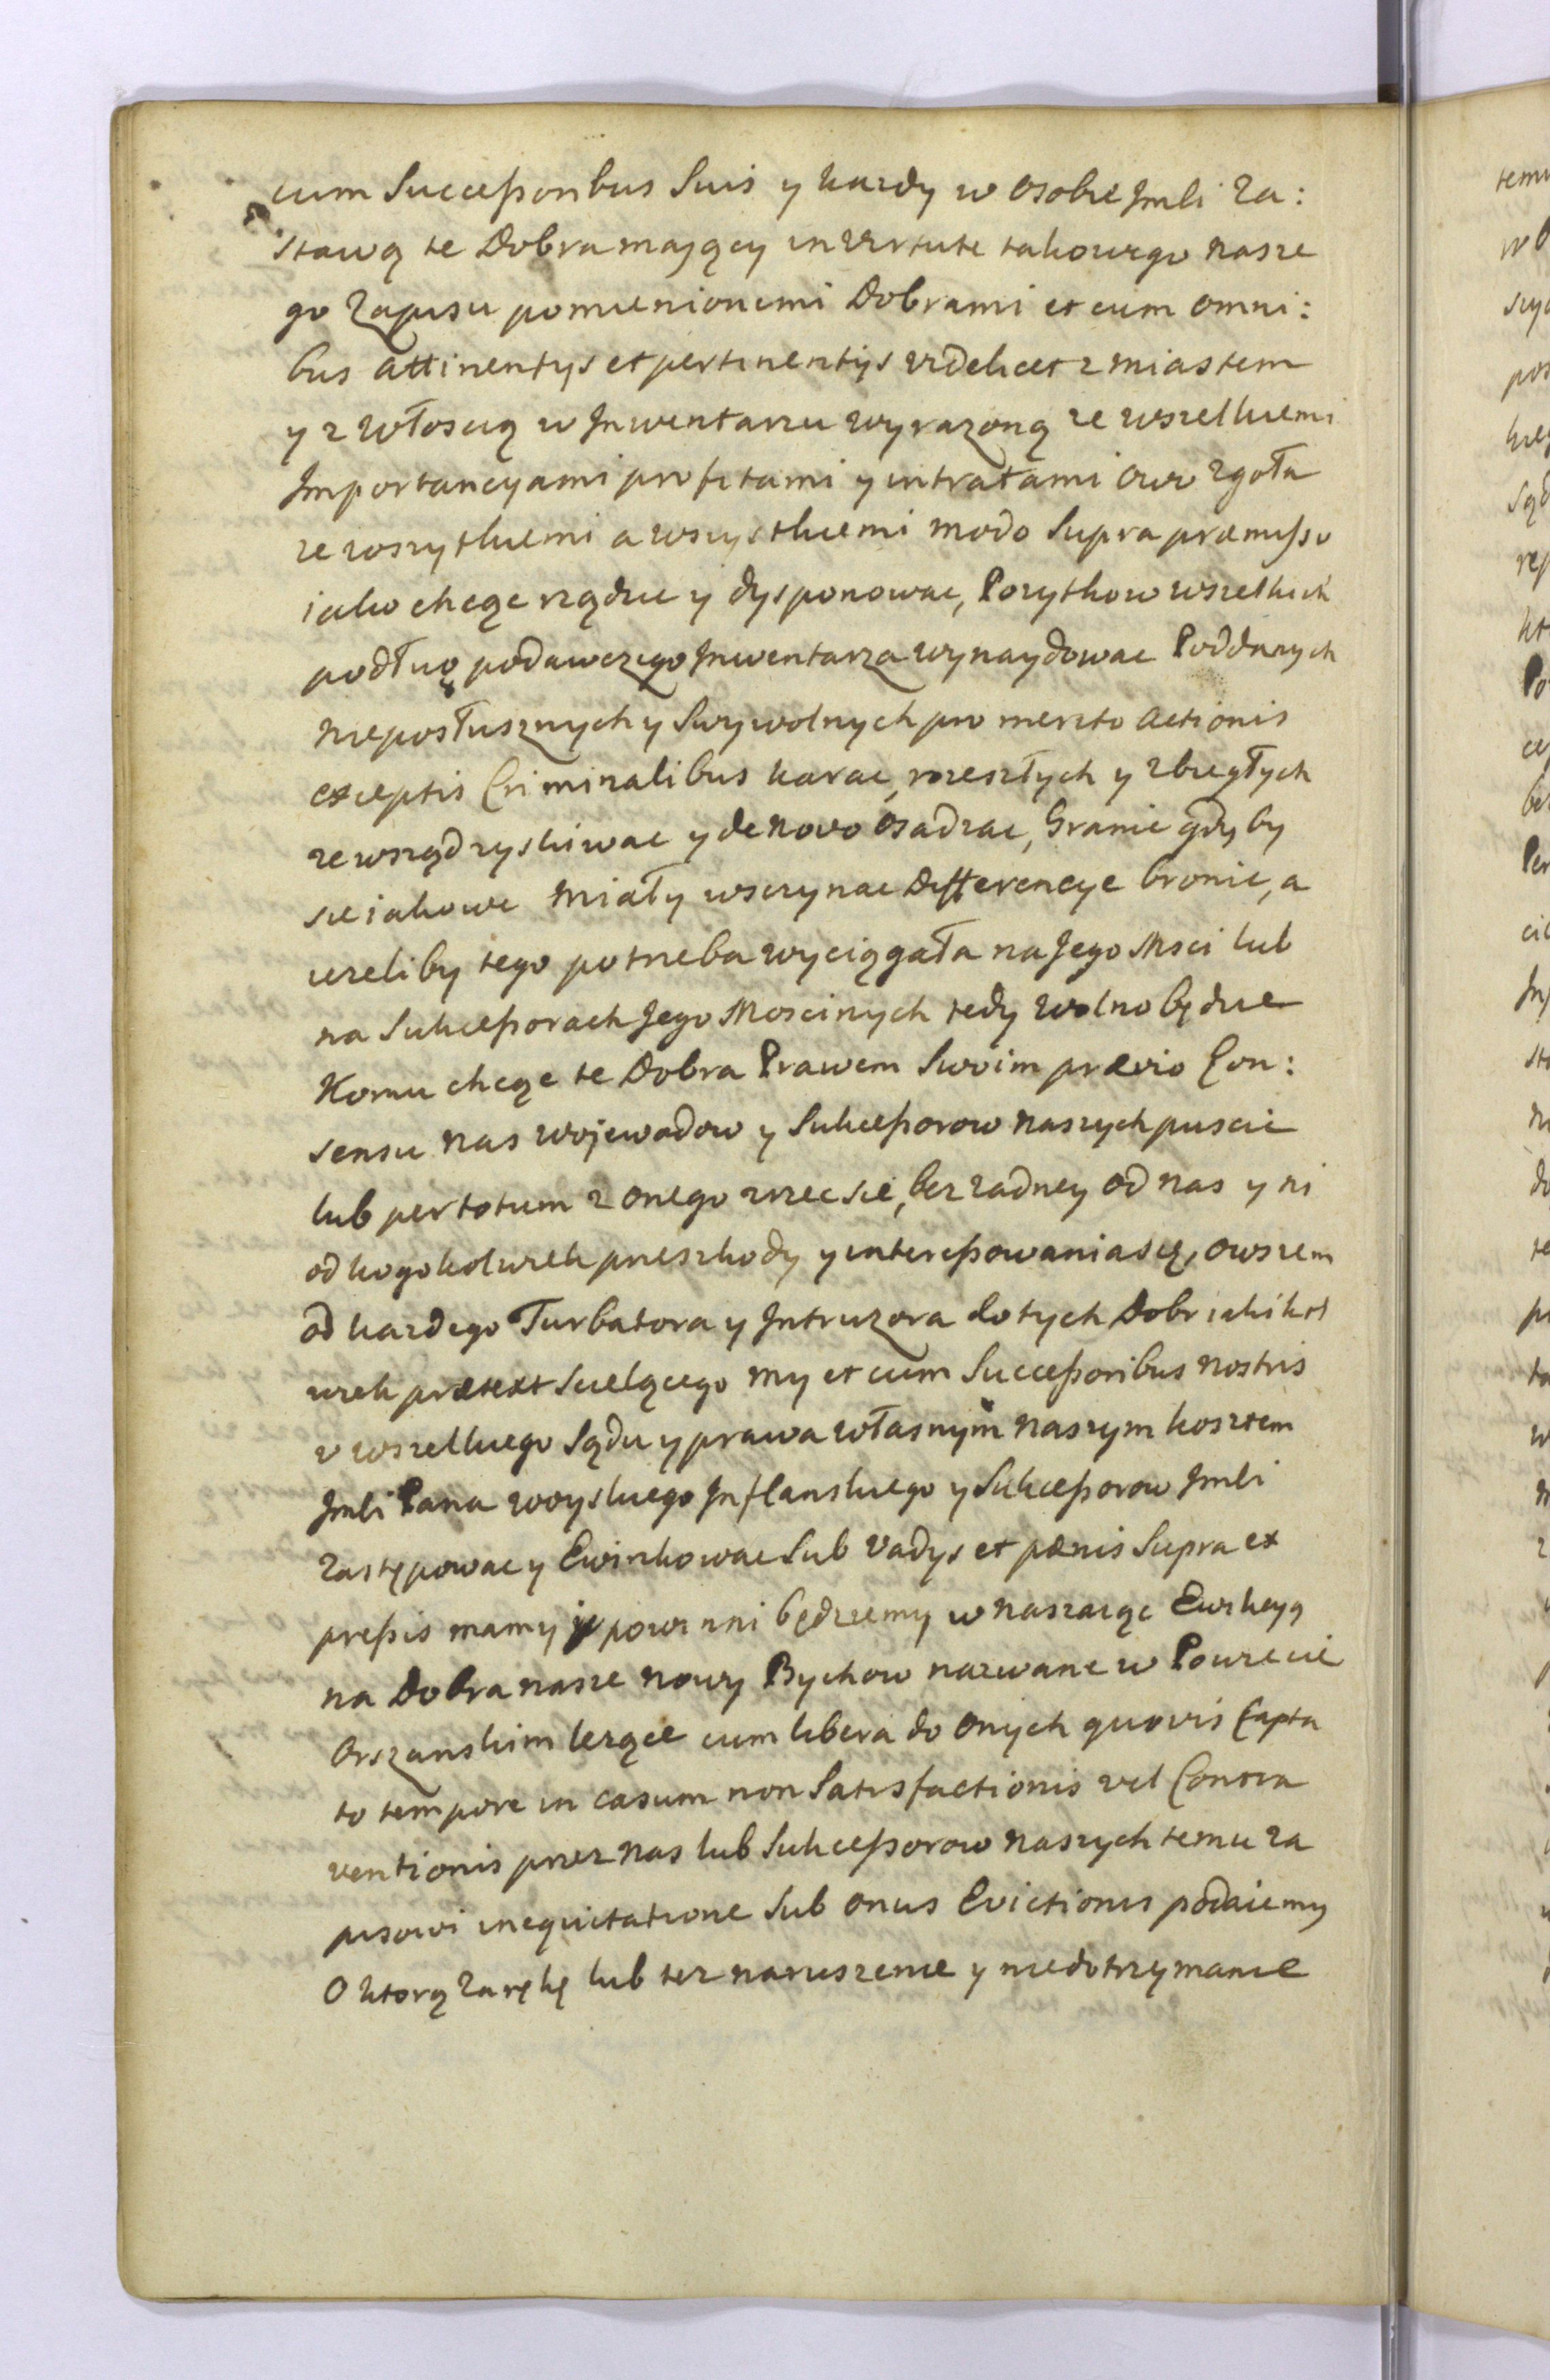 cum Successoribus Suis y kazdy w osobie Jmści Za:
stawą te Dobra maiący in virtute takowego nasze
go Zapisu pomienionemi Dobrami et cum omni:
bus attinentys et pertinentys videlicet z miastem
y z włoscią w Inwentarzu wyrazoną ze wszelkiemi
Importancyami profitami y intratami owo zgoła
ze wszytkiemi a wszystkiemi modo Supra præmisso
iako chcąc rządzic y dysponowac, Pozytkow wszelkich
podług podawczego Inwentarza wynaydowac Poddanych
nieposłusznych y Swywolnych pro merito actionis
exceptis Criminalibus karac, rozeszłych y zbiegłych
zewsząd zyskiwac y de novo osadzac, Granic gdyby
sie iakowe miały wszczynac Differencye bronic, a
iezeliby tego potrzeba wyciągała na Jego Msci lub
na Sukcessorach Jego Moscinych tedy wolno będzie
Komu chcąc te Dobra Prawem Swoim prævio Con:
sensu nas Wojewodow y Sukcessorow naszych puscic
lub per totum z onego zrzec sie, bez zadney od nas y ni
od kogokolwiek przeszkody y interessowania się, owszem
od kazdego Turbatora y Intruzora do tych Dobr iakikol
wiek prætext scielącego my et cum Successoribus nostris
v wszelkiego Sądu y prawa własnym naszym kosztem
Jmści Pana woyskiego Inflanskiego y Sukcessorow Jmści
zastępowac y Ewinkowac Sub vadys et pænis Supra ex
pressis mamy y powinni będziemy wnaszaiąc Ewikcyą
na Dobra nasze nowy Bychow nazwane w Powiecie
Orszanskim lezące cum libera do onych quovis Capta
to tempore in casum non Satisfactionis vel Contra
ventionis przez nas lub Sukcessorow naszych temu za
pisowi inequitatione Sub onus Evictionis podaiemy
O ktorą zarękę lub tez naruszenie y niedotrzymanie